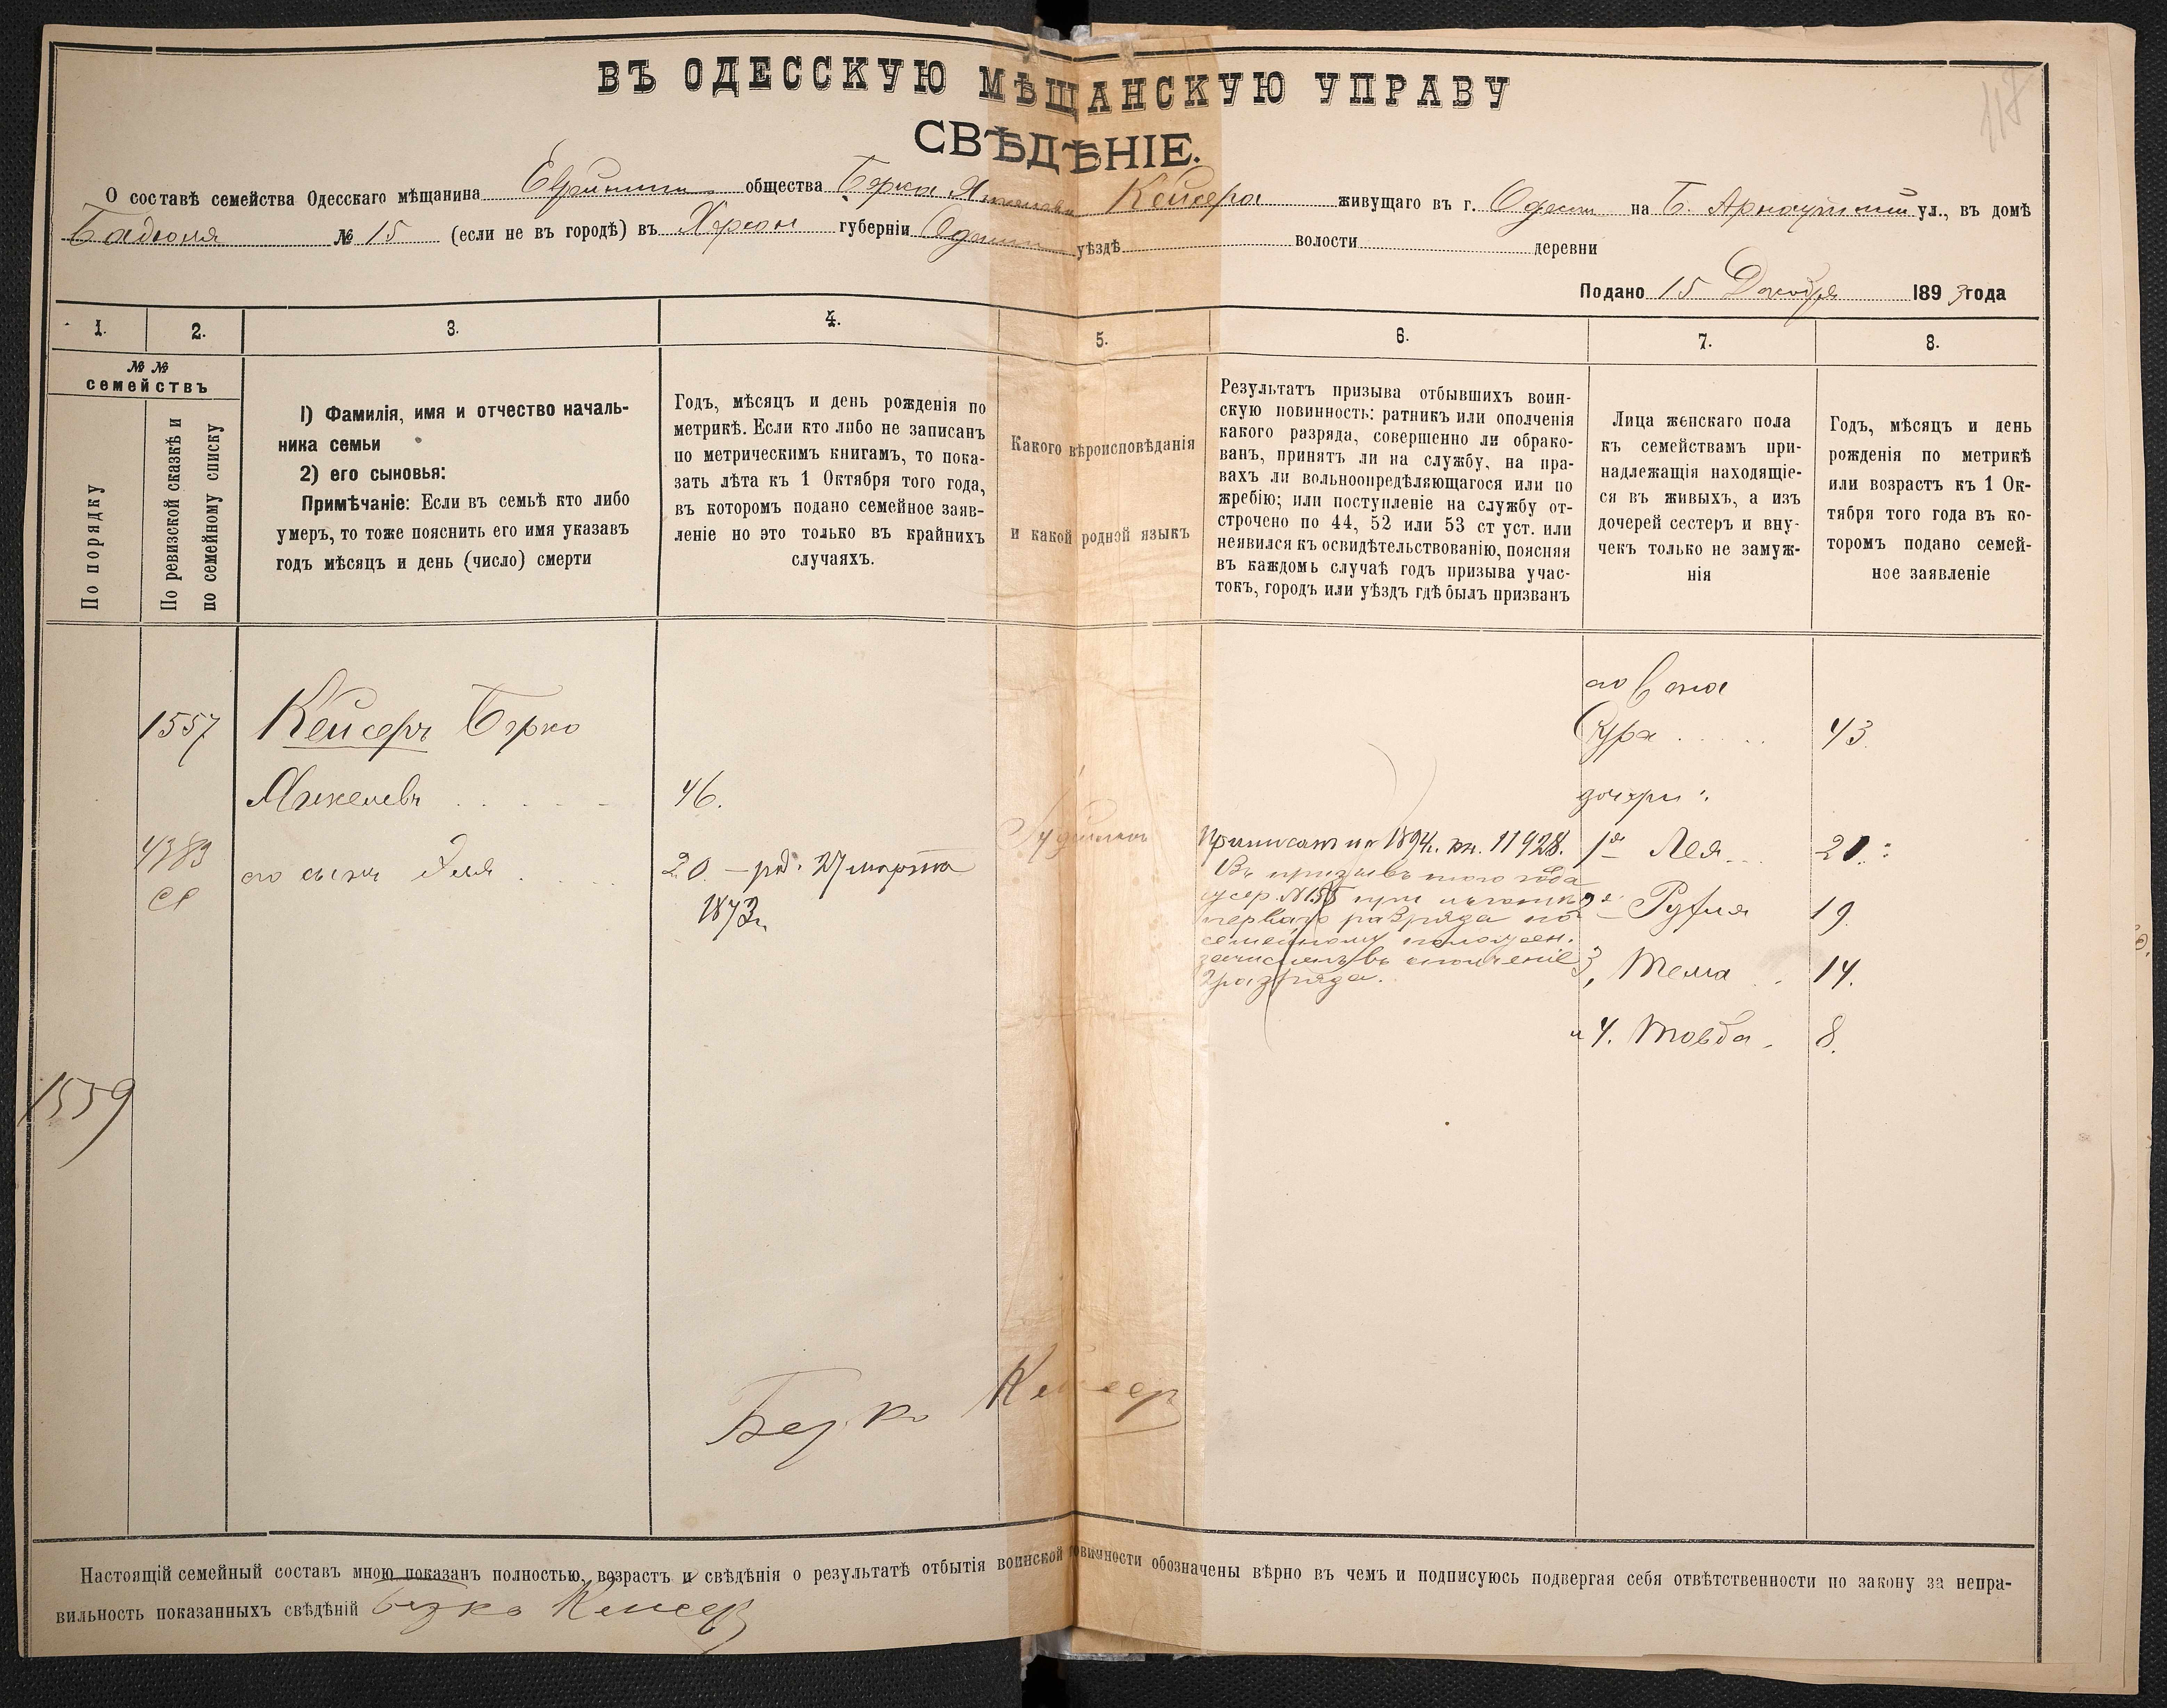 118
ВЪ ОДЕССКУЮ МѢЩАНСКУЮ УПРАВУ
СВѢДѢНІЕ.
О составѣ семейства Одесскаго мѣщанина общества Берка Янкелева Кейсера живущаго въ г. Одессѣ на Б. Арнаутской ул., въ домѣ
Бадюля № 15 (если не въ городѣ) въ Херсон губерніи уѣздѣ волости деревни
Подано 15 Декабря 1893 года
1. 2. 3. 4. 5. 6. 7. 8.
№ №
семействъ
По порядку
По ревизской сказкѣ и
по семейному списку
1) Фамилія, имя и отчество началь-
ника семьи
2) его сыновья:
Примѣчаніе: Если въ семьѣ кто либо
умеръ, то тоже пояснить его имя указавъ
годъ мѣсяцъ и день (число) смерти
Годъ, мѣсяцъ и день рожденія по
метрикѣ. Если кто либо не записанъ
по метрическимъ книгамъ, то пока-
зать лѣта къ 1 Октября того года,
въ которомъ подано семейное заяв-
леніе но это только въ крайнихъ
случаяхъ.
Какого вѣроисповѣданія
и какой родной языкъ
Результатъ призыва отбывшихъ воин-
скую повинность: ратникъ или ополченія
какого разряда, совершенно ли обрако-
ванъ, принятъ ли на службу, на пра-
вахъ ли вольноопредѣляющагося или по
жребію; или поступленіе на службу от-
строчено по 44, 52 или 53 ст уст. или
неявился къ освидѣтельствованію, поясняя
въ каждомъ случаѣ годъ призыва учас-
токъ, городъ или уѣздъ гдѣ былъ призванъ
Лица женскаго пола
къ семействамъ при-
надлежащія находящіе-
ся въ живыхъ, а изъ
дочерей сестеръ и вну-
чекъ только не замуж-
нія
Годъ, мѣсяцъ и день
рожденія по метрикѣ
или возрастъ къ 1 Ок-
тября того года въ ко-
торомъ подано семей-
ное заявленіе
его жена
1557 Кейсеръ Берко Сура 43
Янкелевъ 46. дочери:
4383 его сынъ Эля 20 - род. 27 марта
1873 г.
Іудейскаго
Приписанъ по 1894 г. 11928.
Въ призывъ того года
перваго разряда по
семейному положен.
зачисленъ въ ополченіе
2 разряда.
1я Лея 21
2я Рухля 19
3, Тема 14.
и 4. Товба 8.
1559
Берко Кейсер
Настоящій семейный составъ мною показанъ полностью, возрастъ и свѣдѣнія о результатѣ отбытія воинской повинности обозначены вѣрно въ чемъ и подписуюсь подвергая себя отвѣтственности по закону за непра-
вильность показанныхъ свѣдѣній Берко Кейсер